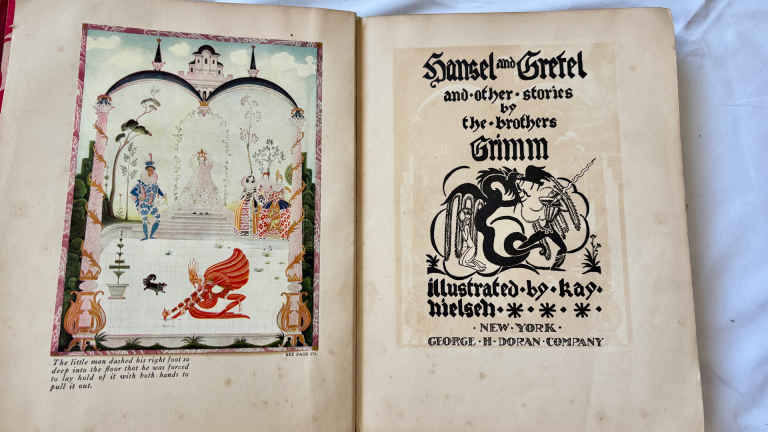 SEE PAGE 171.
The little man dashed his right foot so
deep into the floor that he was forced
to lay hold of it with both hands to
pull it out.
Hansel and Gretel
and · other · stories
by
the · brothers
Grimm
illustrated · by · kay ·
nielsen · * · * · * ·
· NEW · YORK ·
GEORGE · H · DORAN · COMPANY